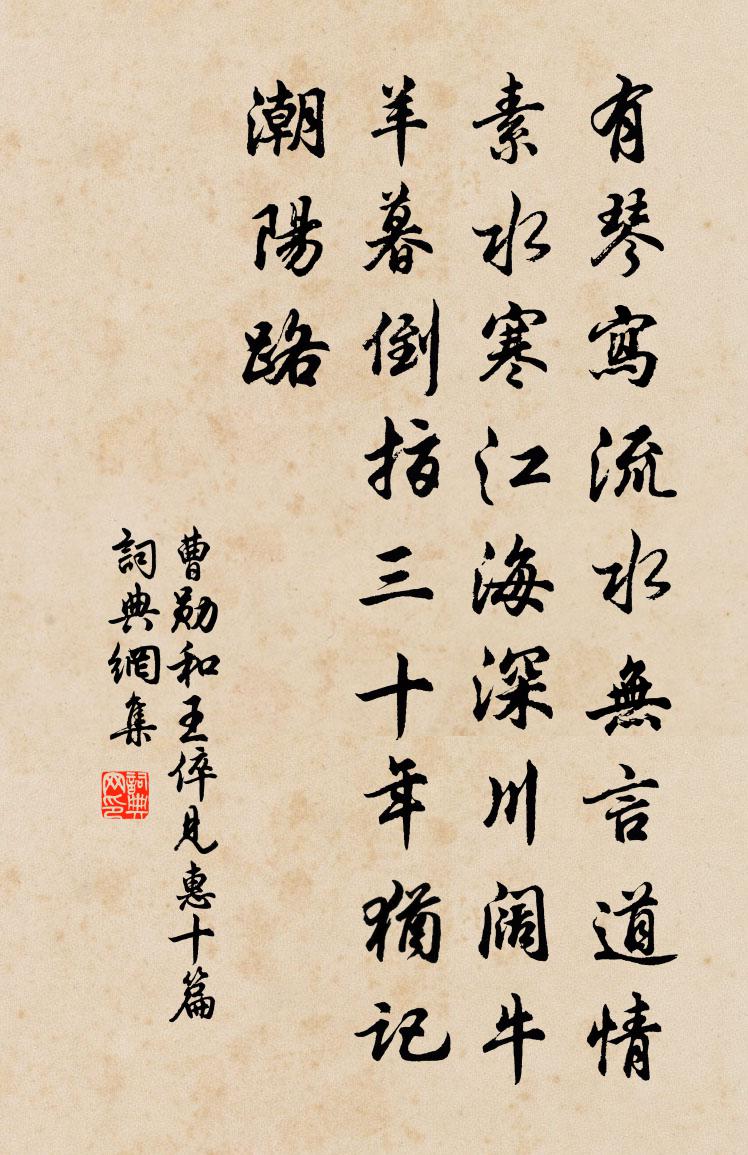 有琴寫流水無言道情
素水寒江海深川闊牛
羊暮倒指三十年猶記
潮陽路
曹勛和王倅見惠十篇
詞典網集
詞典網印